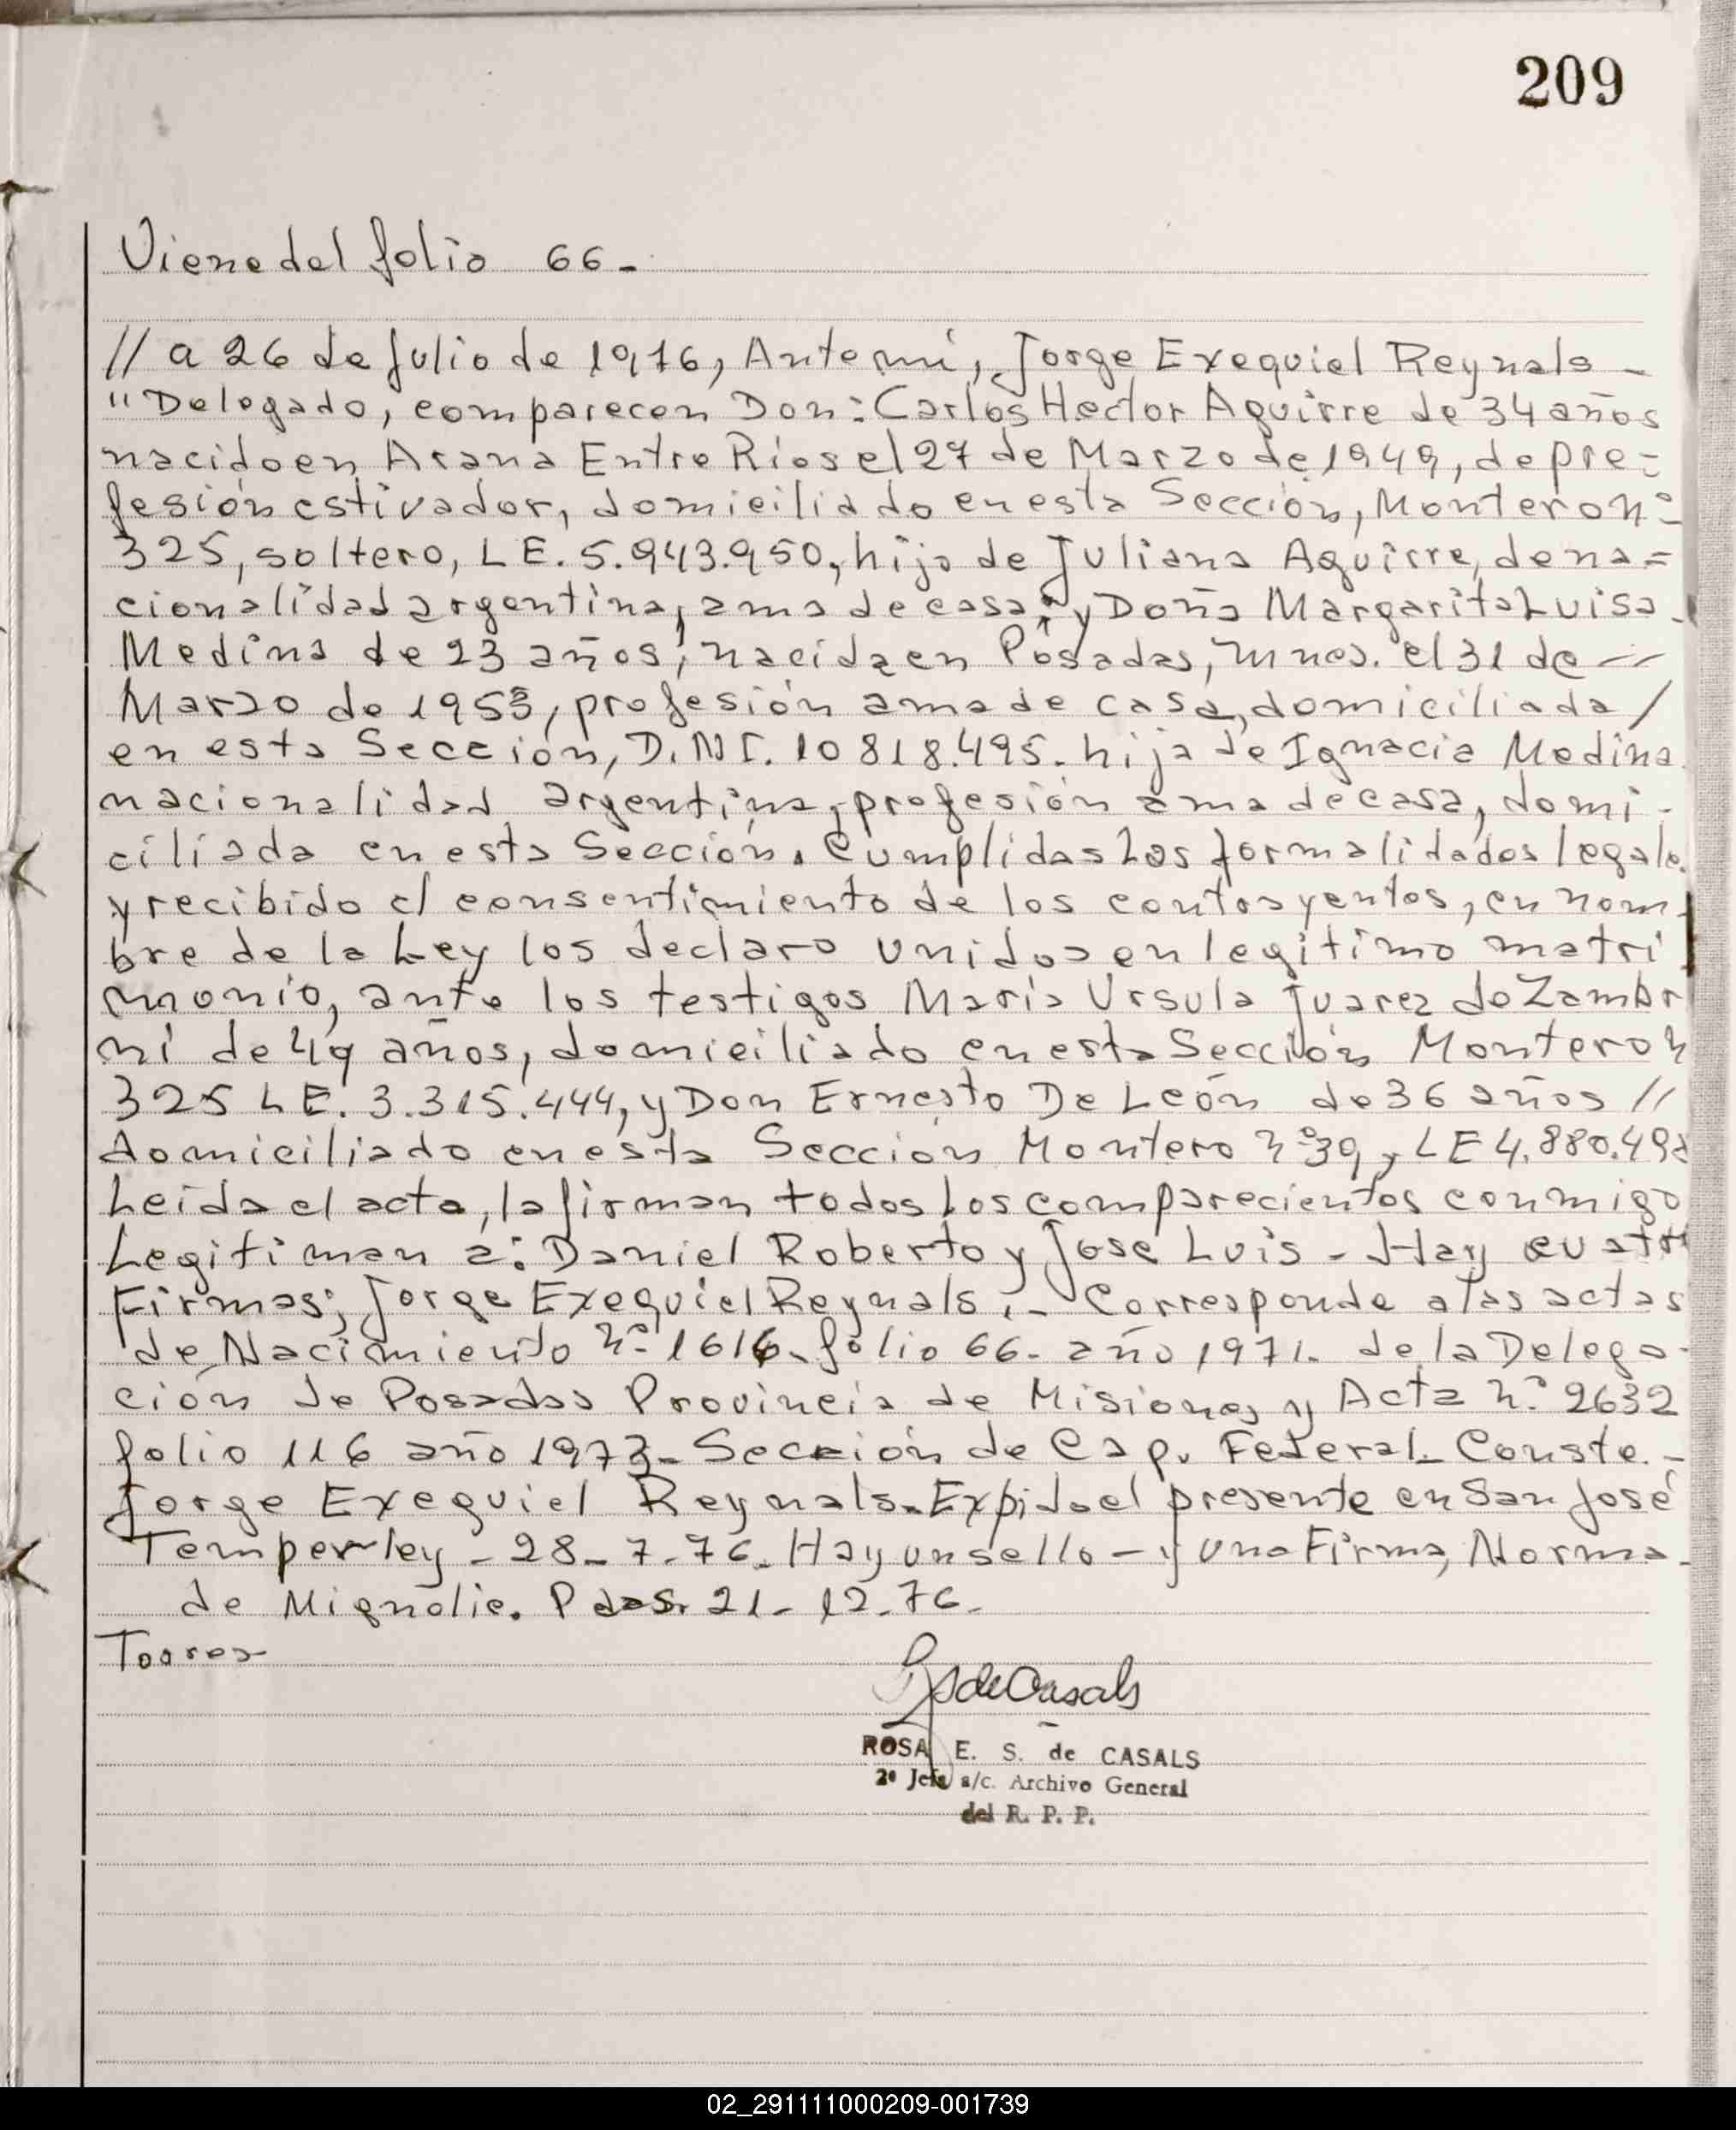 209
Viene del folio 66.-
// a 26 de Julio de 1976, Ante mí, Jorge Exequiel Reynals -
" Delegado, comparecen Don: Carlos Hector Aguirre de 34 años
nacido en Arana Entre Rios el 27 de Marzo de 1949, de pre=
fesión estivador, domiciliado en esta Sección, Montero nº
325, soltero, L E. 5.943.950, hijo de Juliana Aguirre, de na=
cionalidad argentina, ama de casa, y Doña Margarita Luisa
Medina de 23 años, nacida en Posadas, Mnes. el 31 de --
Marzo de 1953, profesión ama de casa, domiciliada /
en esta Sección, D.N I. 10 818.495. hija de Ignacia Medina
nacionalidad argentina, profesión ama de casa, domi-
ciliada en esta Sección. Cumplidas Las formalidades legale.
y recibido el consentimiento de los contrayentes, en nom-
bre de la Ley los declaro unidos en legitimo matri
monio, ante los testigos María Ursula Juarez de Zambr
ni de 49 años, domiciliado en esta Sección Montero n
325 L E. 3.315.444, y Don Ernesto De León de 36 años //
domiciliado en esta Sección Montero nº 39, L E 4.880.498
Leída el acta, la firman todos Los comparecientes conmigo
Legitiman a: Daniel Roberto y José Luis - Hay cuatro
Firmas; Jorge Exequiel Reynals.- Corresponde a las actas
de Nacimiento nº 1616. folio 66. año 1971. de la Delega-
ción de Posadas Provincia de Misiones y Acta nº 2632
folio 116 año 1973. Sección de Cap. Federal. Conste.-
Jorge Exequiel Reynals. Expido el presente en San José
Temperley - 28 - 7 - 76. Hay un sello - y una Firma, Norma.
de Mignolie. Pdas. 21 - 12 - 76.
Torres
RSdeCasals
ROSA E. S. de CASALS
2º Jefa a/c. Archivo General
del R. P. P.
02_291111000209-001739